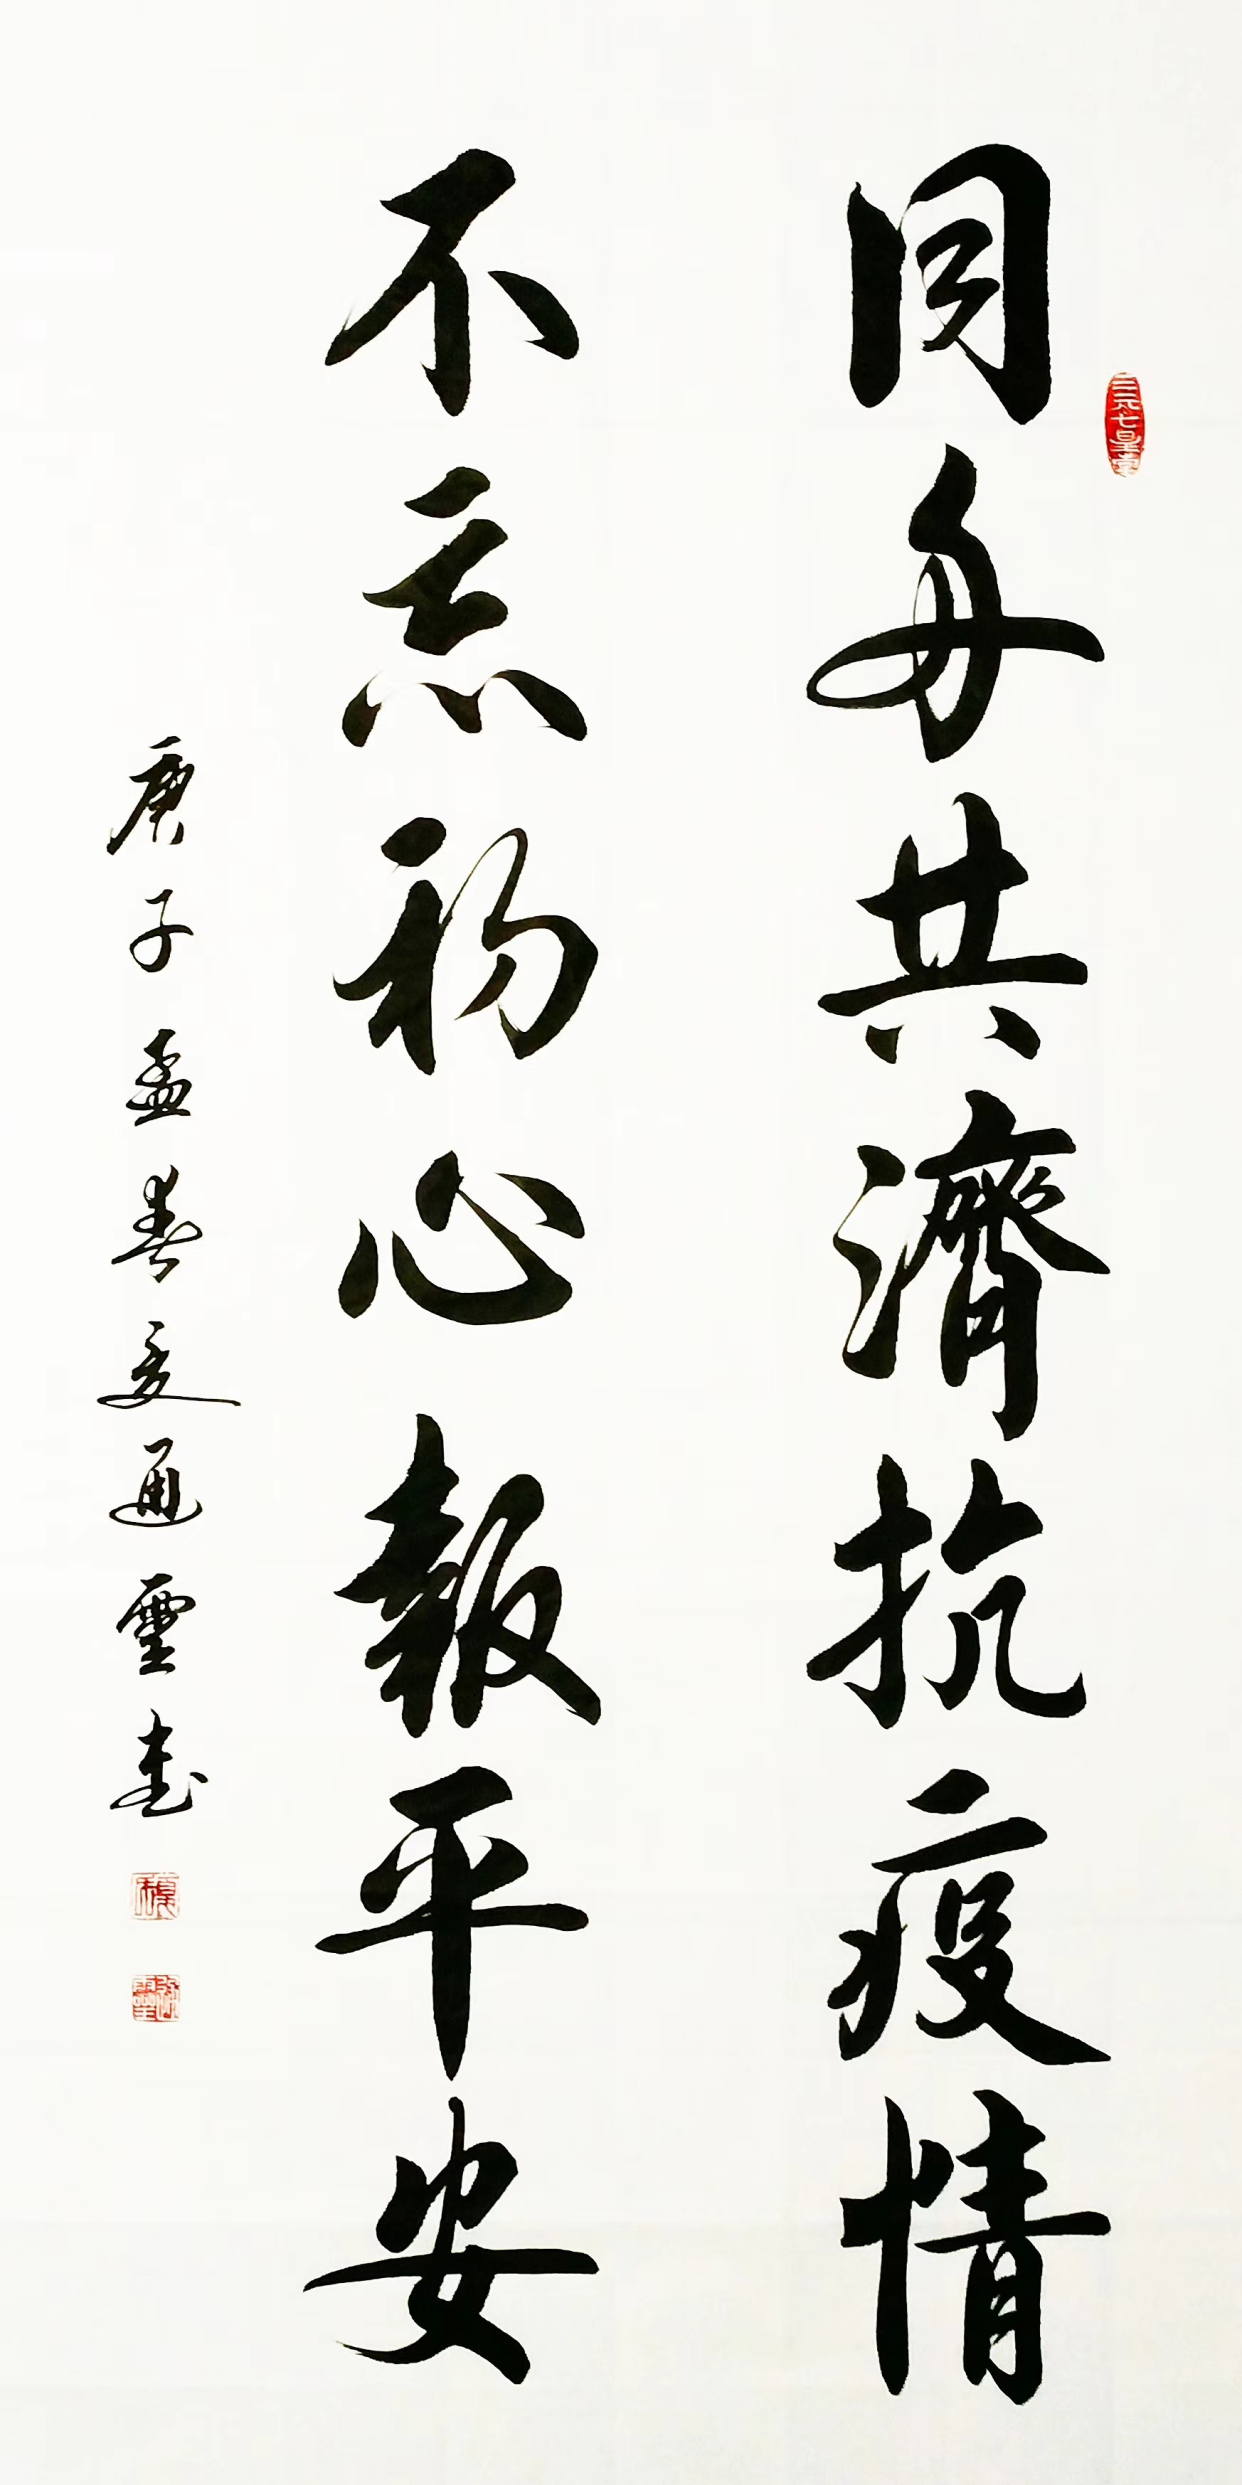 同舟共濟抗疫情
不忘初心報平安
庚子孟春
通靈